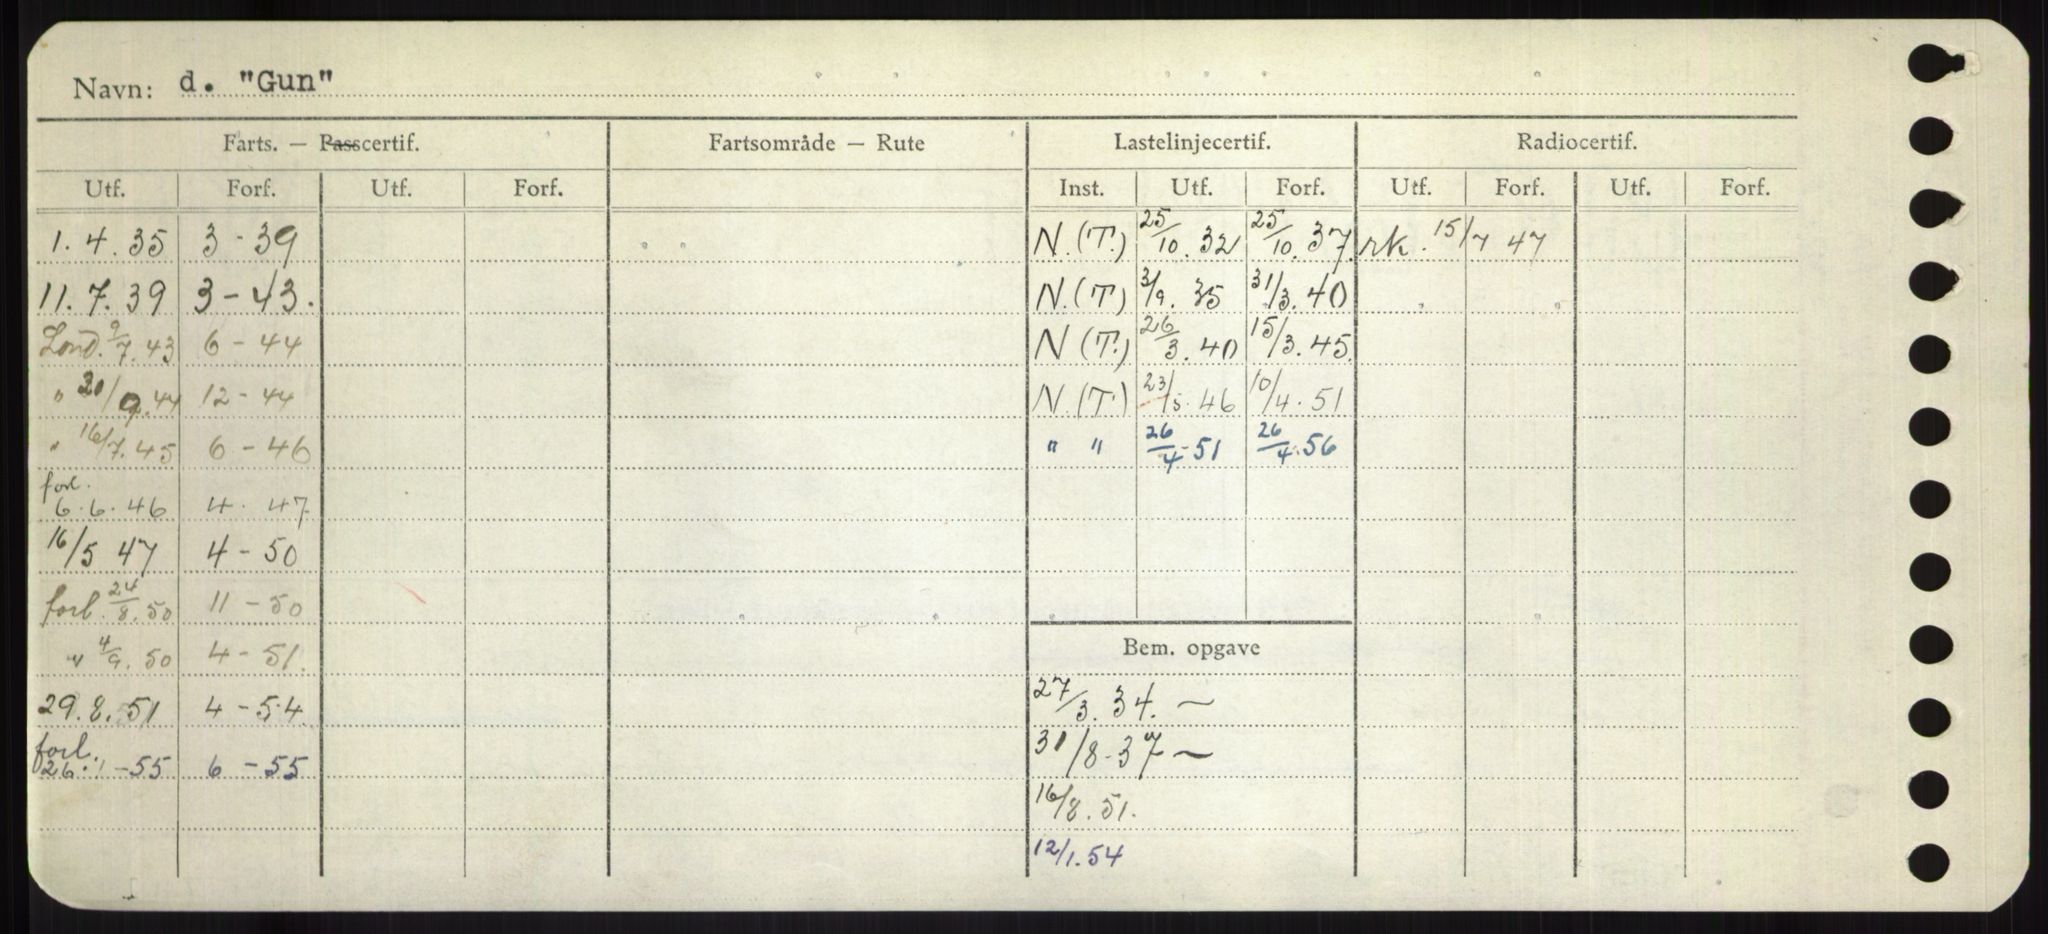 Navn: d. "Gun"
Farts. — Passcertif. Fartsområde — Rute Lastelinjecertif. Radiocertif.
Utf. Forf. Utf. Forf. Inst. Utf. Forf. Utf. Forf. Utf. Forf.
1. 4. 35 3 - 39 N. (T.) 25/10. 32 25/10. 37. rk. 15/7 47
11. 7. 39 3 - 43. N. (T) 3/9. 35 31/3. 40
Lond. 9/7. 43 6 - 44 N (T.) 26/3. 40 15/3. 45.
" /9. 44 12 - 44 N. (T.) 23/5. 46 10/4. 51
" 16/7. 45 6 - 46 " " 26/4 - 51 26/4. 56
forl.
6. 6. 46 4. 47
16/5 47 4 - 50
forl. 24/8. 50 11 - 50
" 4/9. 50 4 - 51. Bem. opgave
29. 8. 51 4 - 54 27/3. 34. ~
forl.
26. 1 - 55 6 - 55 31/8 - 37 ~
16/8. 51.
12/1. 54